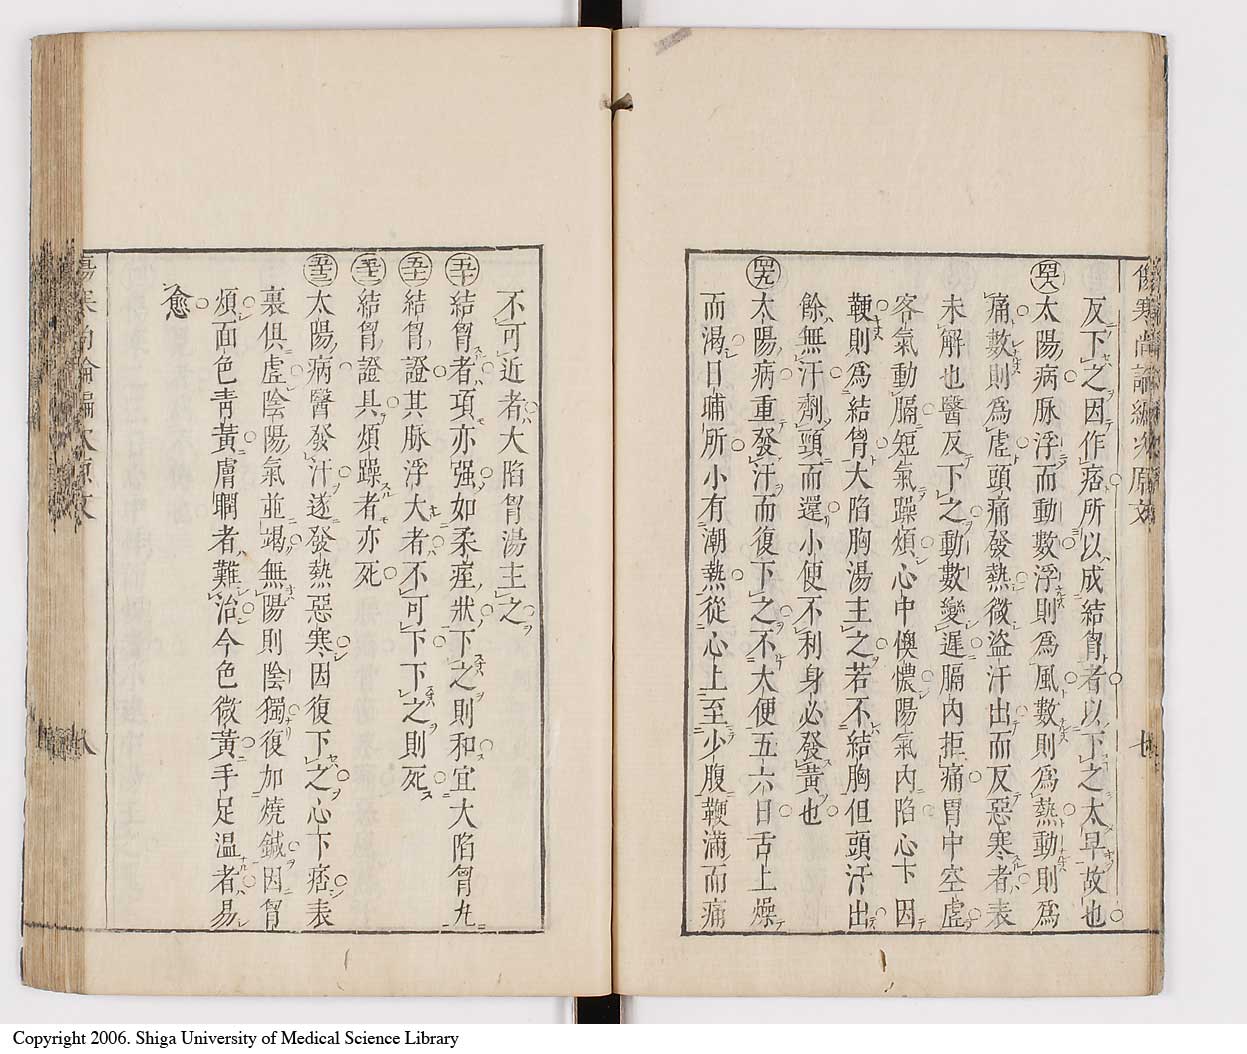 傷寒尚論編次原文
反下之因作痞所以成結胷者以下之太早故也
㊽太陽病脉浮而動數浮則爲風數則爲熱動則爲
痛數則爲虚頭痛發熱微盜汗出而反惡寒者表
未解也醫反下之動數變遲膈內拒痛胃中空虚
客氣動膈短氣躁煩心中懊憹陽氣內陷心下因
鞕則爲結胷大陷胸湯主之若不結胸但頭汗出
餘無汗劑頸而還小便不利身必發黃也
㊾太陽病重發汗而復下之不大便五六日舌上燥
而渴日晡所小有潮熱從心上至少腹鞕滿而痛
不可近者大陷胷湯主之
㊿結胷者項亦强如柔痓狀下之則和宜大陷胷丸
五十一結胷證其脉浮大者不可下下之則死
五十二結胷證具煩躁者亦死
五十三太陽病醫發汗遂發熱惡寒因復下之心下痞表
裏俱虚陰陽氣並竭無陽則陰獨復加燒鍼因胷
煩面色靑黃膚瞤者難治今色微黃手足温者易
愈
傷寒尚論編次原文
八
Copyright 2006. Shiga University of Medical Science Library